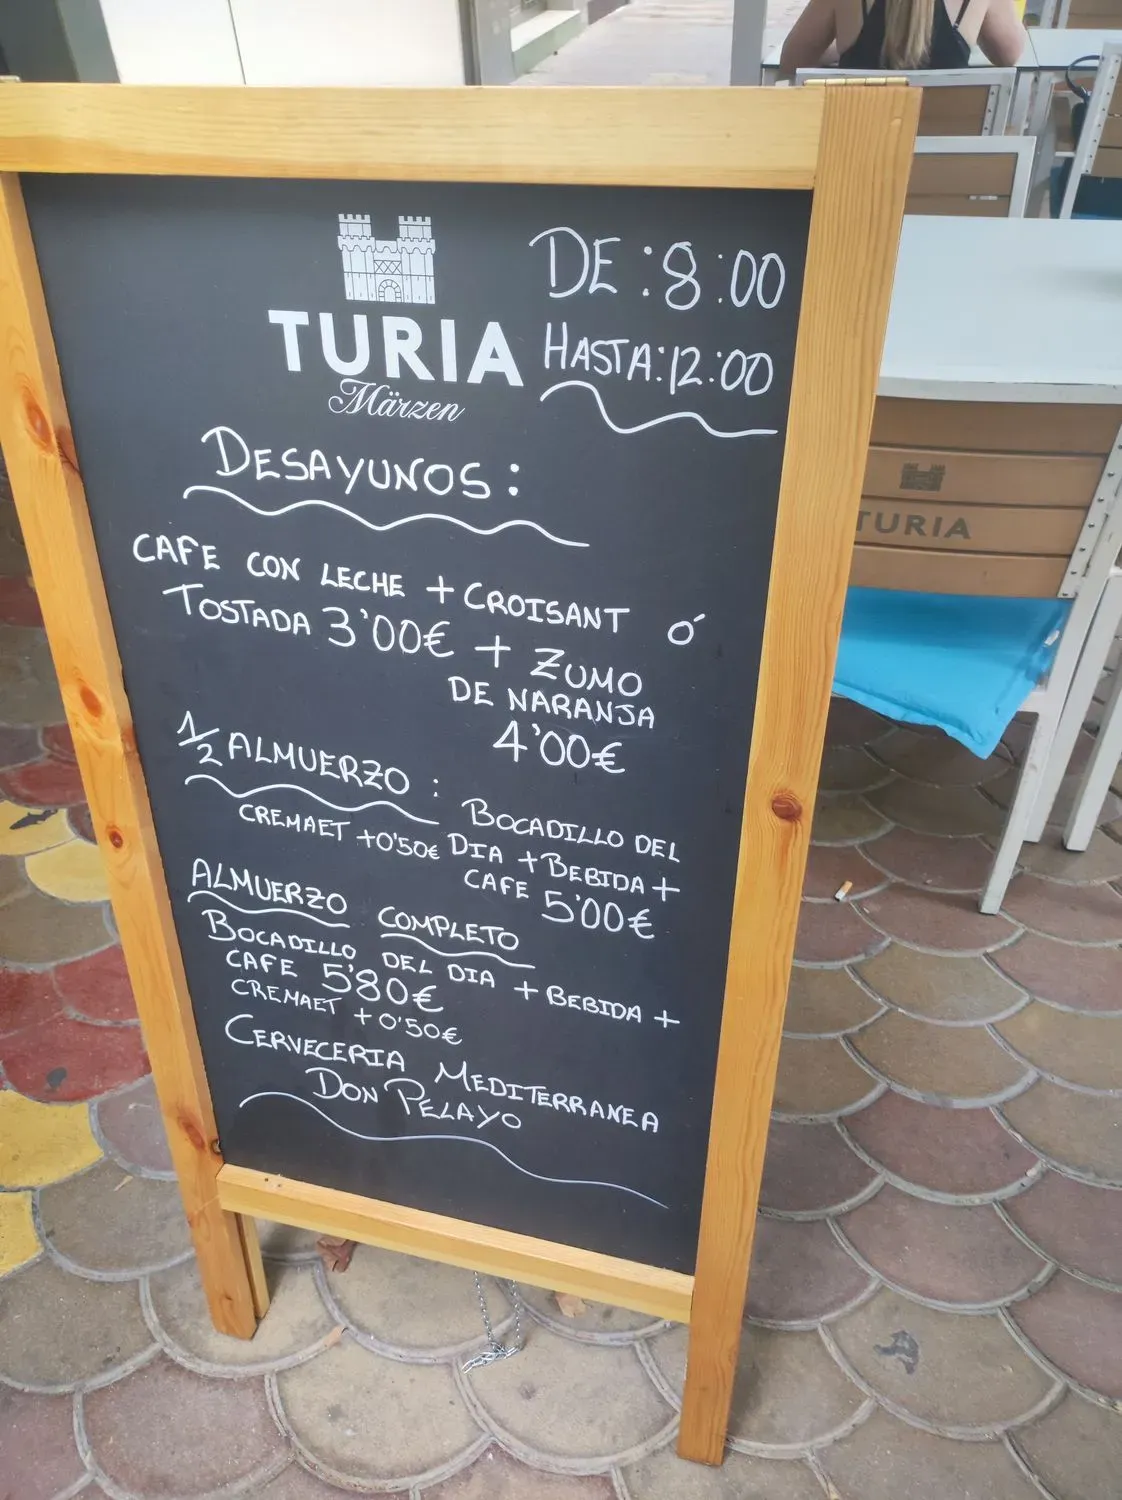 TURIA
Märzen
DE:8:00
HASTA:12:00
DESAYUNOS:
CAFE CON LECHE + CROISANT Ó
TOSTADA 3'00€ + ZUMO
DE NARANJA
4'00€
1/2 ALMUERZO: BOCADILLO DEL
CREMAET +0'50€ DIA + BEBIDA +
CAFE 5'00€
ALMUERZO COMPLETO
BOCADILLO DEL DIA + BEBIDA +
CAFE 5'80€
CREMAET +0'50€
CERVECERIA MEDITERRANEA
DON PELAYO
TURIA